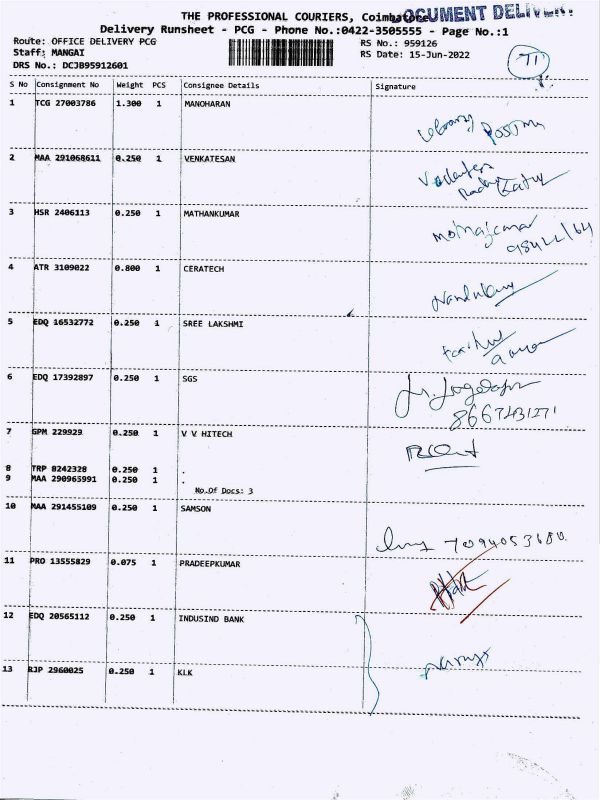 THE PROFESSIONAL COURIERS, Coimbatore
DOCUMENT DELIVERY
Delivery Runsheet - PCG - Phone No.:0422-3505555 - Page No.:1
Route: OFFICE DELIVERY PCG
RS No.: 959126
Staff: MANGAI
RS Date: 15-Jun-2022
DRS No.: DCJB95912601
T1
S No Consignment No Weight PCS Consignee Details Signature
1 TCG 27003786 1.300 1 MANOHARAN
2 MAA 291068611 0.250 1 VENKATESAN
3 HSR 2406113 0.250 1 MATHANKUMAR
4 ATR 3109022 0.800 1 CERATECH
5 EDQ 16532772 0.250 1 SREE LAKSHMI
6 EDQ 17392897 0.250 1 SGS
8667431271
7 GPM 229929 0.250 1 V V HITECH
8 TRP 8242328 0.250 1 .
9 MAA 290965991 0.250 1 .
No.Of Docs: 3
10 MAA 291455109 0.250 1 SAMSON
7094053680
11 PRO 13555829 0.075 1 PRADEEPKUMAR
12 EDQ 20565112 0.250 1 INDUSIND BANK
13 RJP 2960025 0.250 1 KLK